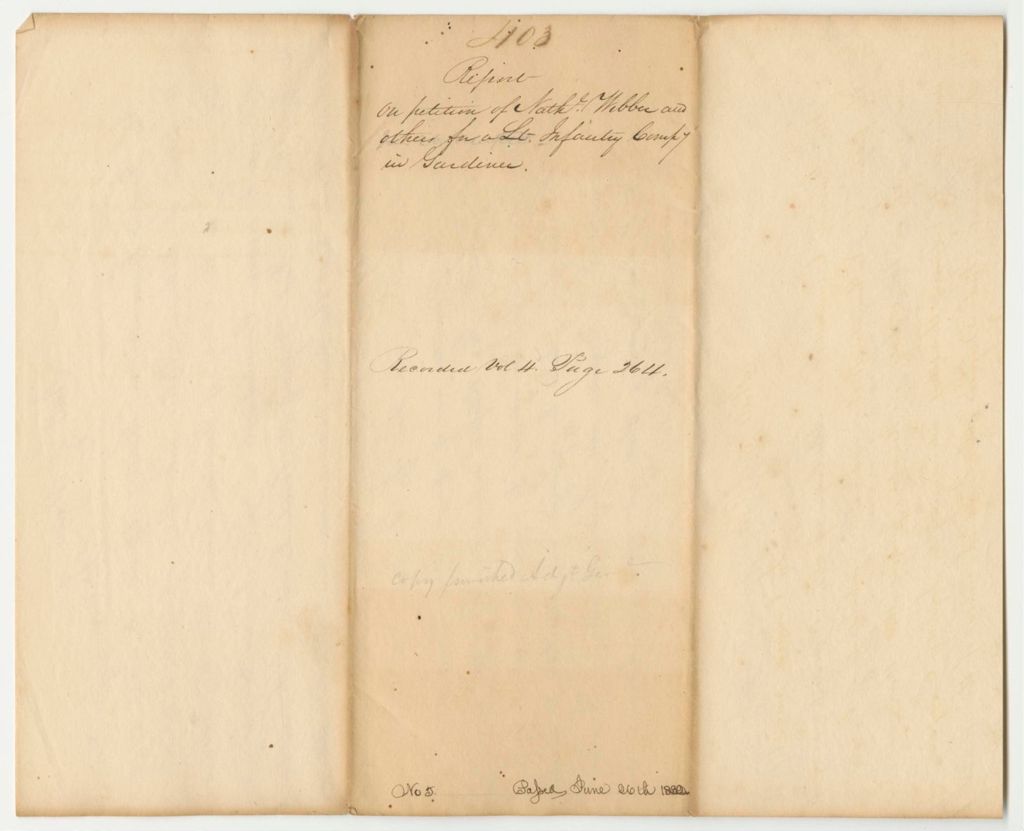 403
Report
on petition of Nathl. Webber and
others for a Lt. Infantry Compy
in Gardiner.
Recorded Vol 4. Page 264.
copy furnished Adjt Genl.
No 5. Passed, June 26th